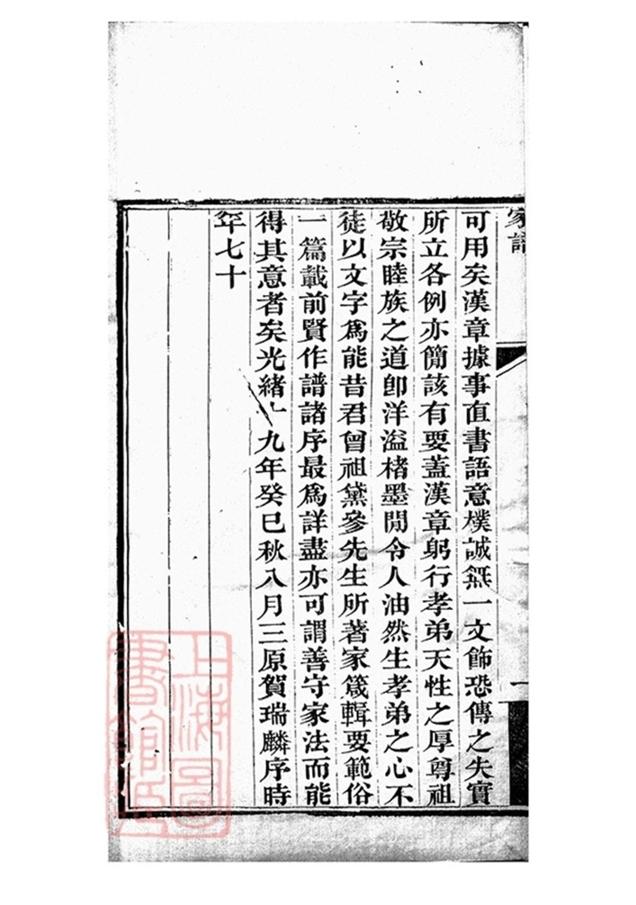 家譜
可用矣漢章據事直書語意樸誠無一文飾恐傳之失實
所立各例亦簡該有要蓋漢章躬行孝弟天性之厚尊祖
敬宗睦族之道卽洋溢楮墨閒令人油然生孝弟之心不
徒以文字爲能昔君曾祖黛參先生所著家箴輯要範俗
一篇載前賢作譜諸序最爲詳盡亦可謂善守家法而能
得其意者矣光緒十九年癸巳秋八月三原賀瑞麟序時
年七十
上海圖
書館藏